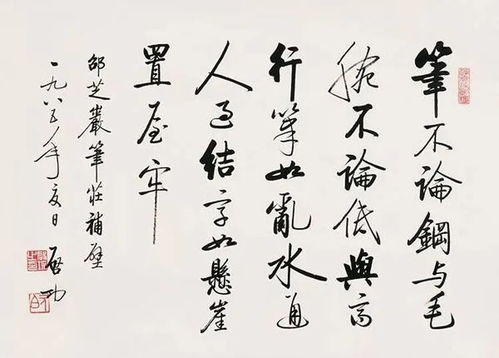 筆不論鋼与毛
腕不論低與高
行筆如亂水通
人過結字如懸崖
置屋牢
邵芝巖筆莊補壁
一九八五年夏日 启功